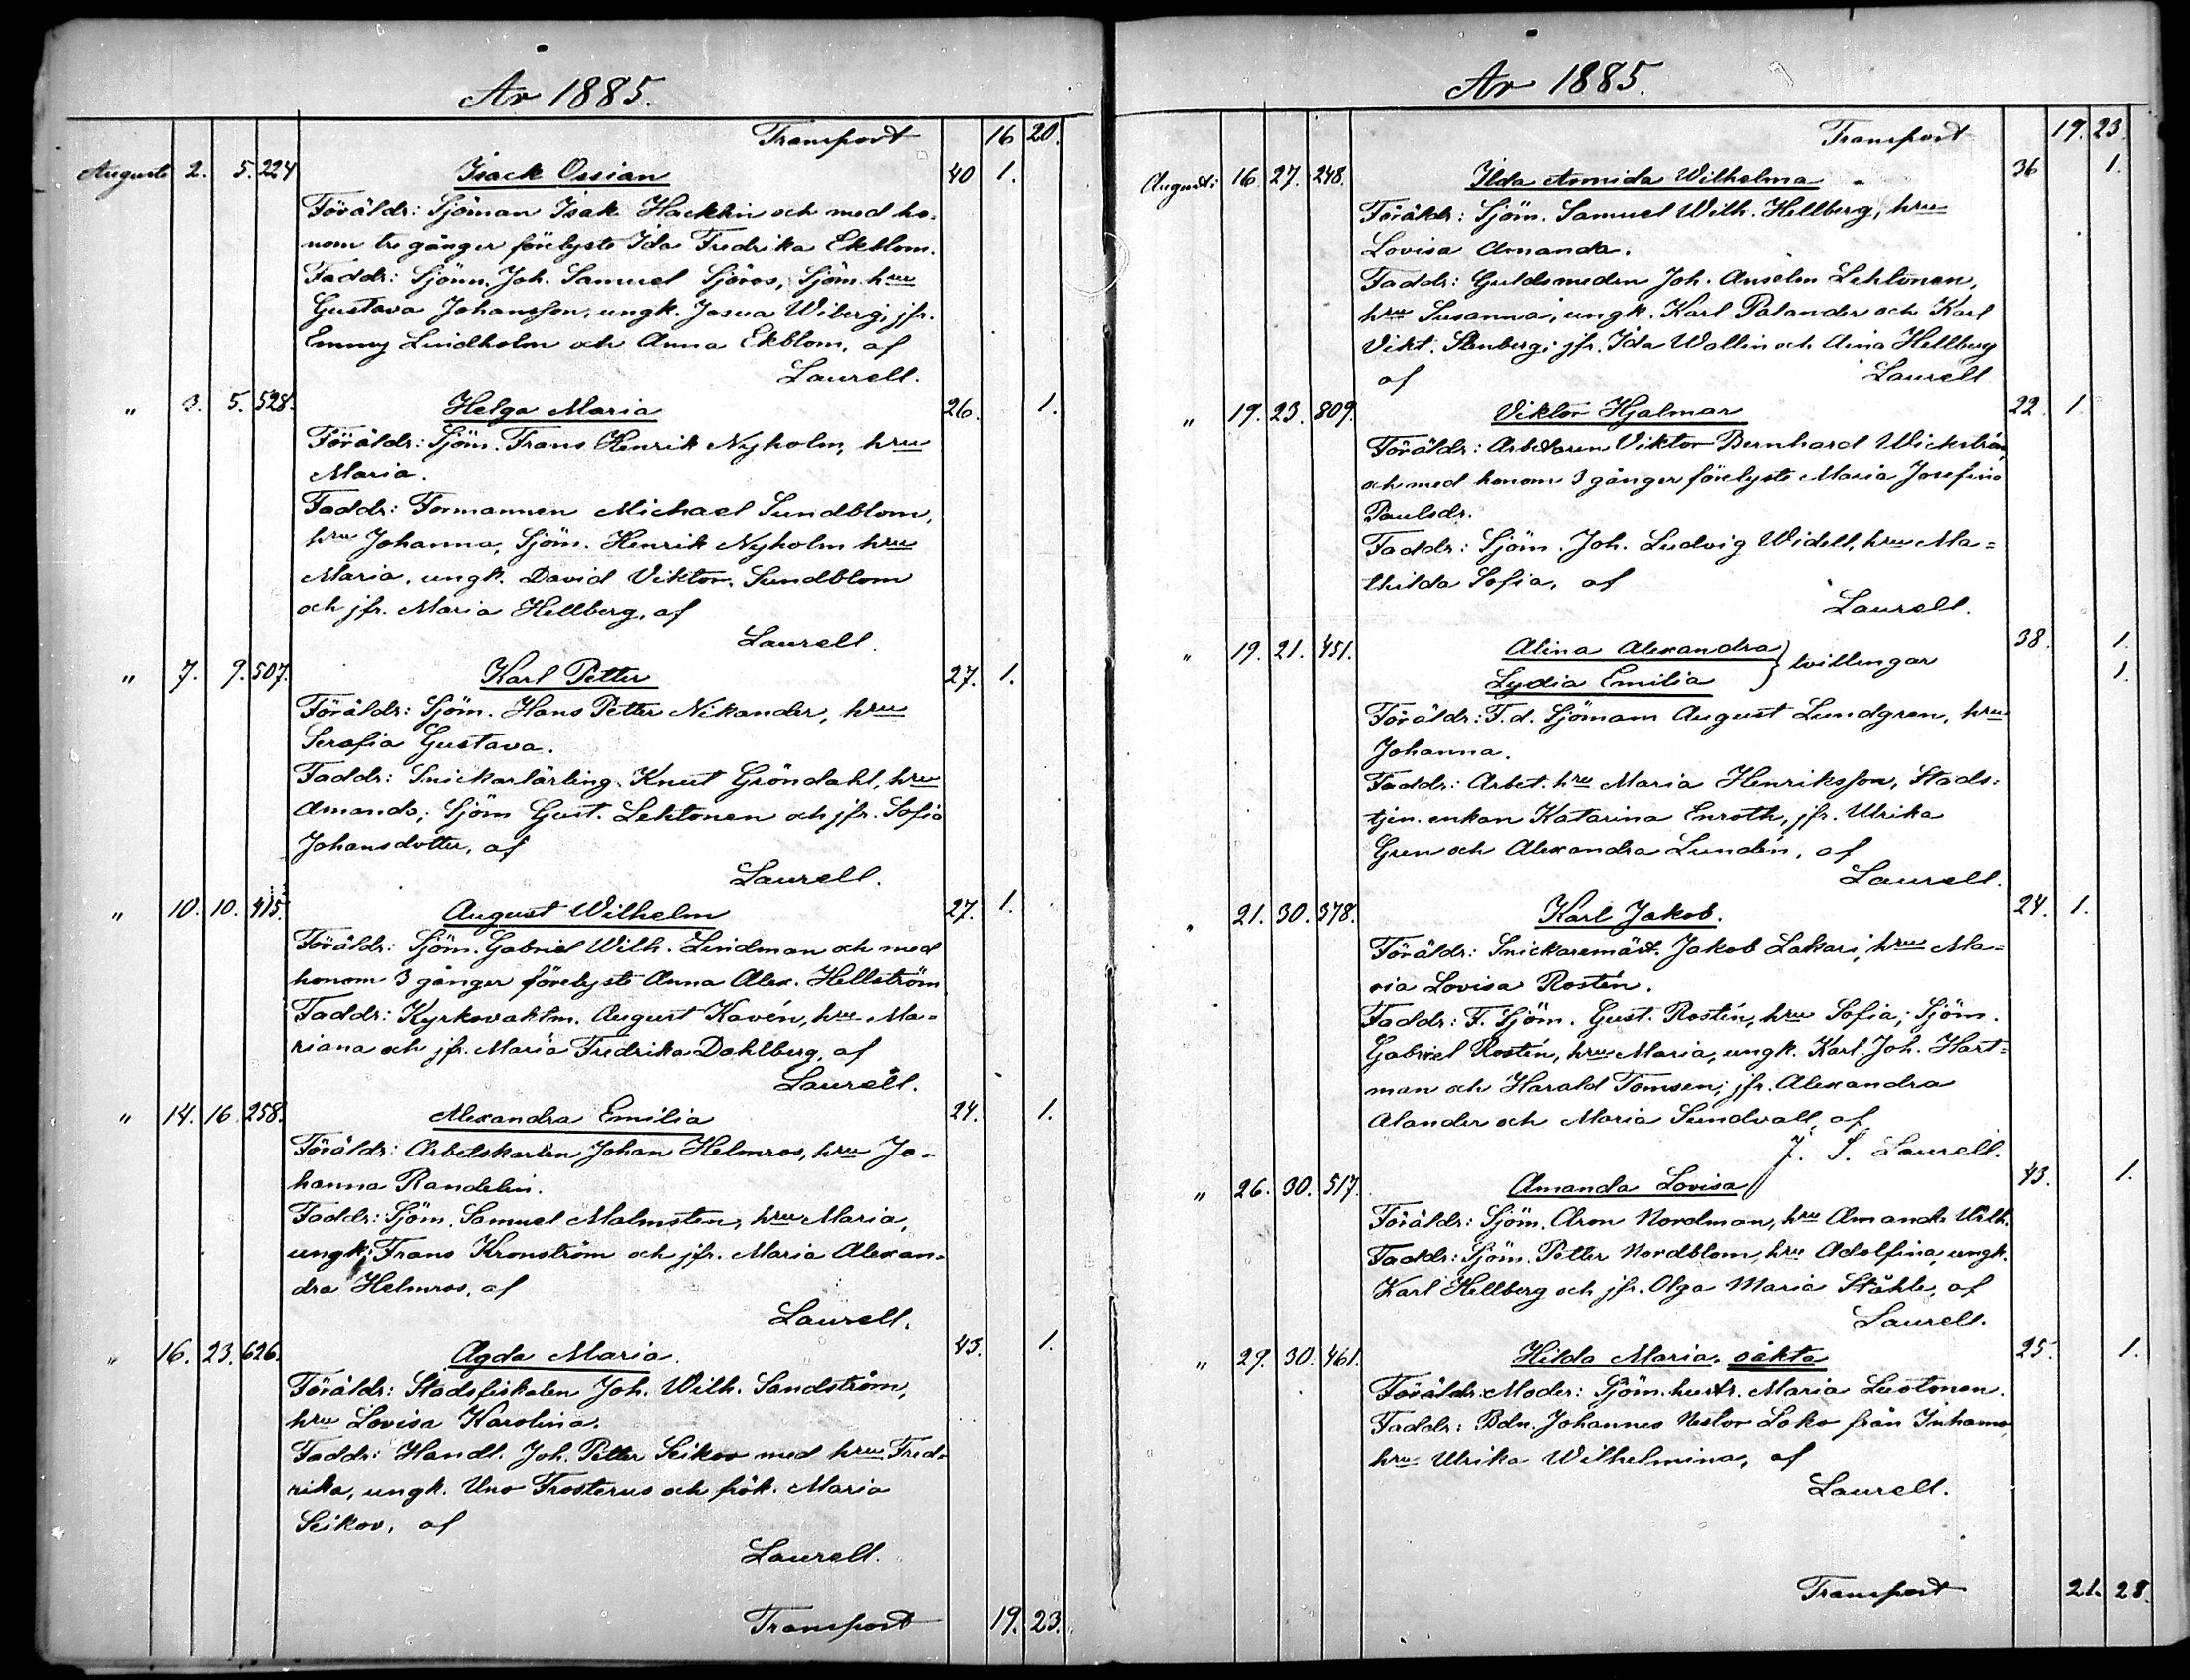 År 1885.
Transport 16 20.
Augusti 2. 5. 224 Isack Ossian 40 1.
Föräldr: Sjöman Isak Hacklin och med ho-
nom tre gånger förelyste Ida Fredrika Ekblom.
Faddr: Sjöm. Joh. Samuel Sjöros, Sjöm. hru
Gustava Johansson, ungk. Josua Wiberg, jfr.
Emmy Lindholm och Anna Ekblom, af
Laurell.
" 3. 5. 528. Helga Maria 26. 1.
Föräldr: Sjöm. Frans Henrik Nyholm, hru
Maria.
Faddr: Formannen Michael Sundblom,
hru Johanna, Sjöm. Henrik Nyholm hru
Maria, ungk. David Viktor Sundblom
och jfr. Maria Hellberg, af
Laurell.
" 7. 9. 507. Karl Petter 27. 1.
Föräldr: Sjöm. Hans Petter Nikander, hru
Serafia Gustava.
Faddr: Snickarlärling Knut Gröndahl, hru
Amanda; Sjöm Gust. Lehtonen och jfr. Sofia
Johansdotter, af
Laurell.
" 10. 10. 415. August Wilhelm 27. 1.
Föräldr: Sjöm. Gabriel Wilh. Lindman och med
honom 3 gånger förelyste Anna Alex. Hellström
Faddr: Kyrkovaktm. August Kavén, hru Ma-
riana och jfr. Maria Fredrika Dahlberg, af
Laurell.
" 14. 16. 258. Alexandra Emilia 24. 1.
Föräldr: Arbetskarlen Johan Helmros, hru Jo-
hanna Randelin.
Faddr: Sjöm. Samuel Malmsten, hru Maria,
ungk; Frans Kronström och jfr. Maria Alexan-
dra Helmros, af
Laurell.
" 16. 23. 626. Agda Maria. 43. 1.
Föräldr: Stadsfiskalen Joh. Wilh. Sandström,
hru Lovisa Karolina.
Faddr: Handl. Joh. Petter Seikov med hru Fred-
rika, ungk. Uno Frosterus och frök. Maria
Seikov, af
Laurell.
Transport 19. 23.
År 1885.
Transport 19. 23.
Augusti 16. 27. 248. Ilda Armida Wilhelma 36 1.
Föräldr: Sjöm. Samuel Wilh. Hellberg, hru
Lovisa Amanda.
Faddr: Guldsmeden Joh. Anselm Lehtonen,
hru Susanna, ungk. Karl Palander och Karl
Vikt. Stenberg; jfr. Ida Wallin och Aina Hellberg
af Laurell
" 19. 23. 809. Viktor Hjalmar 22 1.
Föräldr: Arbetaren Viktor Bernhard Wickström
och med honom 3 gånger förelyste Maria Josefina
Paulsdr.
Faddr: Sjöm. Joh. Ludvig Widell, hru Ma-
thilda Sofia, af
Laurell.
" 19. 21. 451. Alina Alexandra 38. 1.
Lydia Emilia } tvillingar 1.
Föräldr: F.d. Sjömann August Lundgren, hru
Johanna.
Faddr: Arbet. hru Maria Henriksson, Stads-
tjen. enkan Katarina Enroth, jfr. Ulrika
Gren och Alexandra Lundén, af
Laurell.
" 21. 30. 378. Karl Jakob. 24. 1.
Föräldr: Snickaremäst. Jakob Lakari, hru Ma-
ria Lovisa Rostén.
Faddr: F. Sjöm. Gust. Rostén, hru Sofia; Sjöm.
Gabriel Rostén, hru Maria, ungk. Karl Joh. Hart-
man och Harald Tomsen; jfr. Alexandra
Alander och Maria Sundvall, af
J. S. Laurell.
" 26. 30. 517. Amanda Lovisa 43. 1.
Föräldr: Sjöm. Aron Nordman, hru Amanda Wilh.
Faddr: Sjöm. Petter Nordblom, hru Adolfina, ungk.
Karl Hellberg och jfr. Olga Maria Ståhle, af
Laurell.
" 29. 30. 461. Hilda Maria. oäkta 25. 1.
Föräldr: Moder: Sjöm. hustr. Maria Luotonen.
Faddr: Bdn. Johannes Nestor Loko från
hru Ulrika Wilhelmina, af
Laurell.
Transport 21. 28.